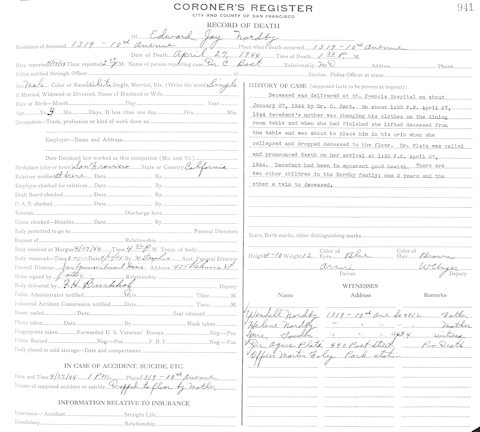 CORONER'S REGISTER
CITY AND COUNTY OF SAN FRANCISCO
941
RECORD OF DEATH
Of Edward Jay Nordby
Residence of deceased 1319 - 10th Avenue Place where death occurred 1319 - 10th Avenue
Date of Death April 27, 1944 Time of Death 1:30 P. M.
Date reported 4/27/44 Time reported M. Name of person reporting case Relationship
Police notified through Officer of Station, Police Officer at scene
Sex Male Color or Race White Single, Married, Etc. (Write the word) Single
If Married, Widowed or Divorced, Name of Husband or Wife
Date of Birth—Month Day Year
Age Yrs. 3 Mos. Days. If less than one day Hrs. Min.
Occupation—Trade, profession or kind of work done at
Employer—Name and Address
Date Deceased last worked at this occupation (Mo. and Yr.)
Birthplace (city or town) San Francisco State or Country California
Relatives notified at scene Date By
Employer checked for relatives Date By
Draft Board checked Date By
O. A. P. checked Date By
Veteran Discharge here
Union checked—Benefits Date By
Body permitted to go to Funeral Directors
Request of Relationship
Body received at Morgue 4/27/44 Time P. M. Temp. of body
Body removed—Time Date By Asst. Funeral Director
Funeral Director Address
Order signed by Father Relationship
Body delivered by Deputy
Public Administrator notified Date Time M.
Industrial Accident Commission notified Date Time M.
Room sealed Date Seal released
Photo taken Date By Mark taken
Fingerprints taken Forwarded U. S. Veterans' Bureau Neg.—Pos.
Police Record Neg.—Pos. F. B. I. Neg.—Pos.
Body placed in cold storage—Date and compartment
IN CASE OF ACCIDENT, SUICIDE, ETC.
Date and Time 4/27/44 1 PM Place 1319 - 10th Avenue
Nature of supposed accident or suicide Dropped to floor by Mother
INFORMATION RELATIVE TO INSURANCE
Insurance—Accident Straight Life
Beneficiary Relationship
HISTORY OF CASE: (supposed facts to be proven at inquest):
Deceased was delivered at St. Francis Hospital on about
January 27, 1944 by Dr. C. Hart. On about 1:00 P.M. April 27,
1944 decedent's mother was changing his clothes on the dining
room table and when she had finished she lifted deceased from
the table and was about to place him in his crib when she
collapsed and dropped deceased to the floor. Dr. Plate was called
and pronounced death on her arrival at 1:30 P.M. April 27,
1944. Decedent had been in apparent good health. There are
two other children in the Nordby family; one 2 years and the
other a twin to deceased.
Scars, Birth marks, other distinguishing marks
Height Weight 12 Color of Eyes Blue Color of Hair Brown
Driver Deputy
WITNESSES
Name Address Remarks
Wendell Nordby 1319 - 10th Ave Father
Helene Nordby " " " Mother
Mrs. " " " Apt 4 witness
Dr. Agnes Plate 490 Post Street Pro Death
Officer Martin Foley Park station